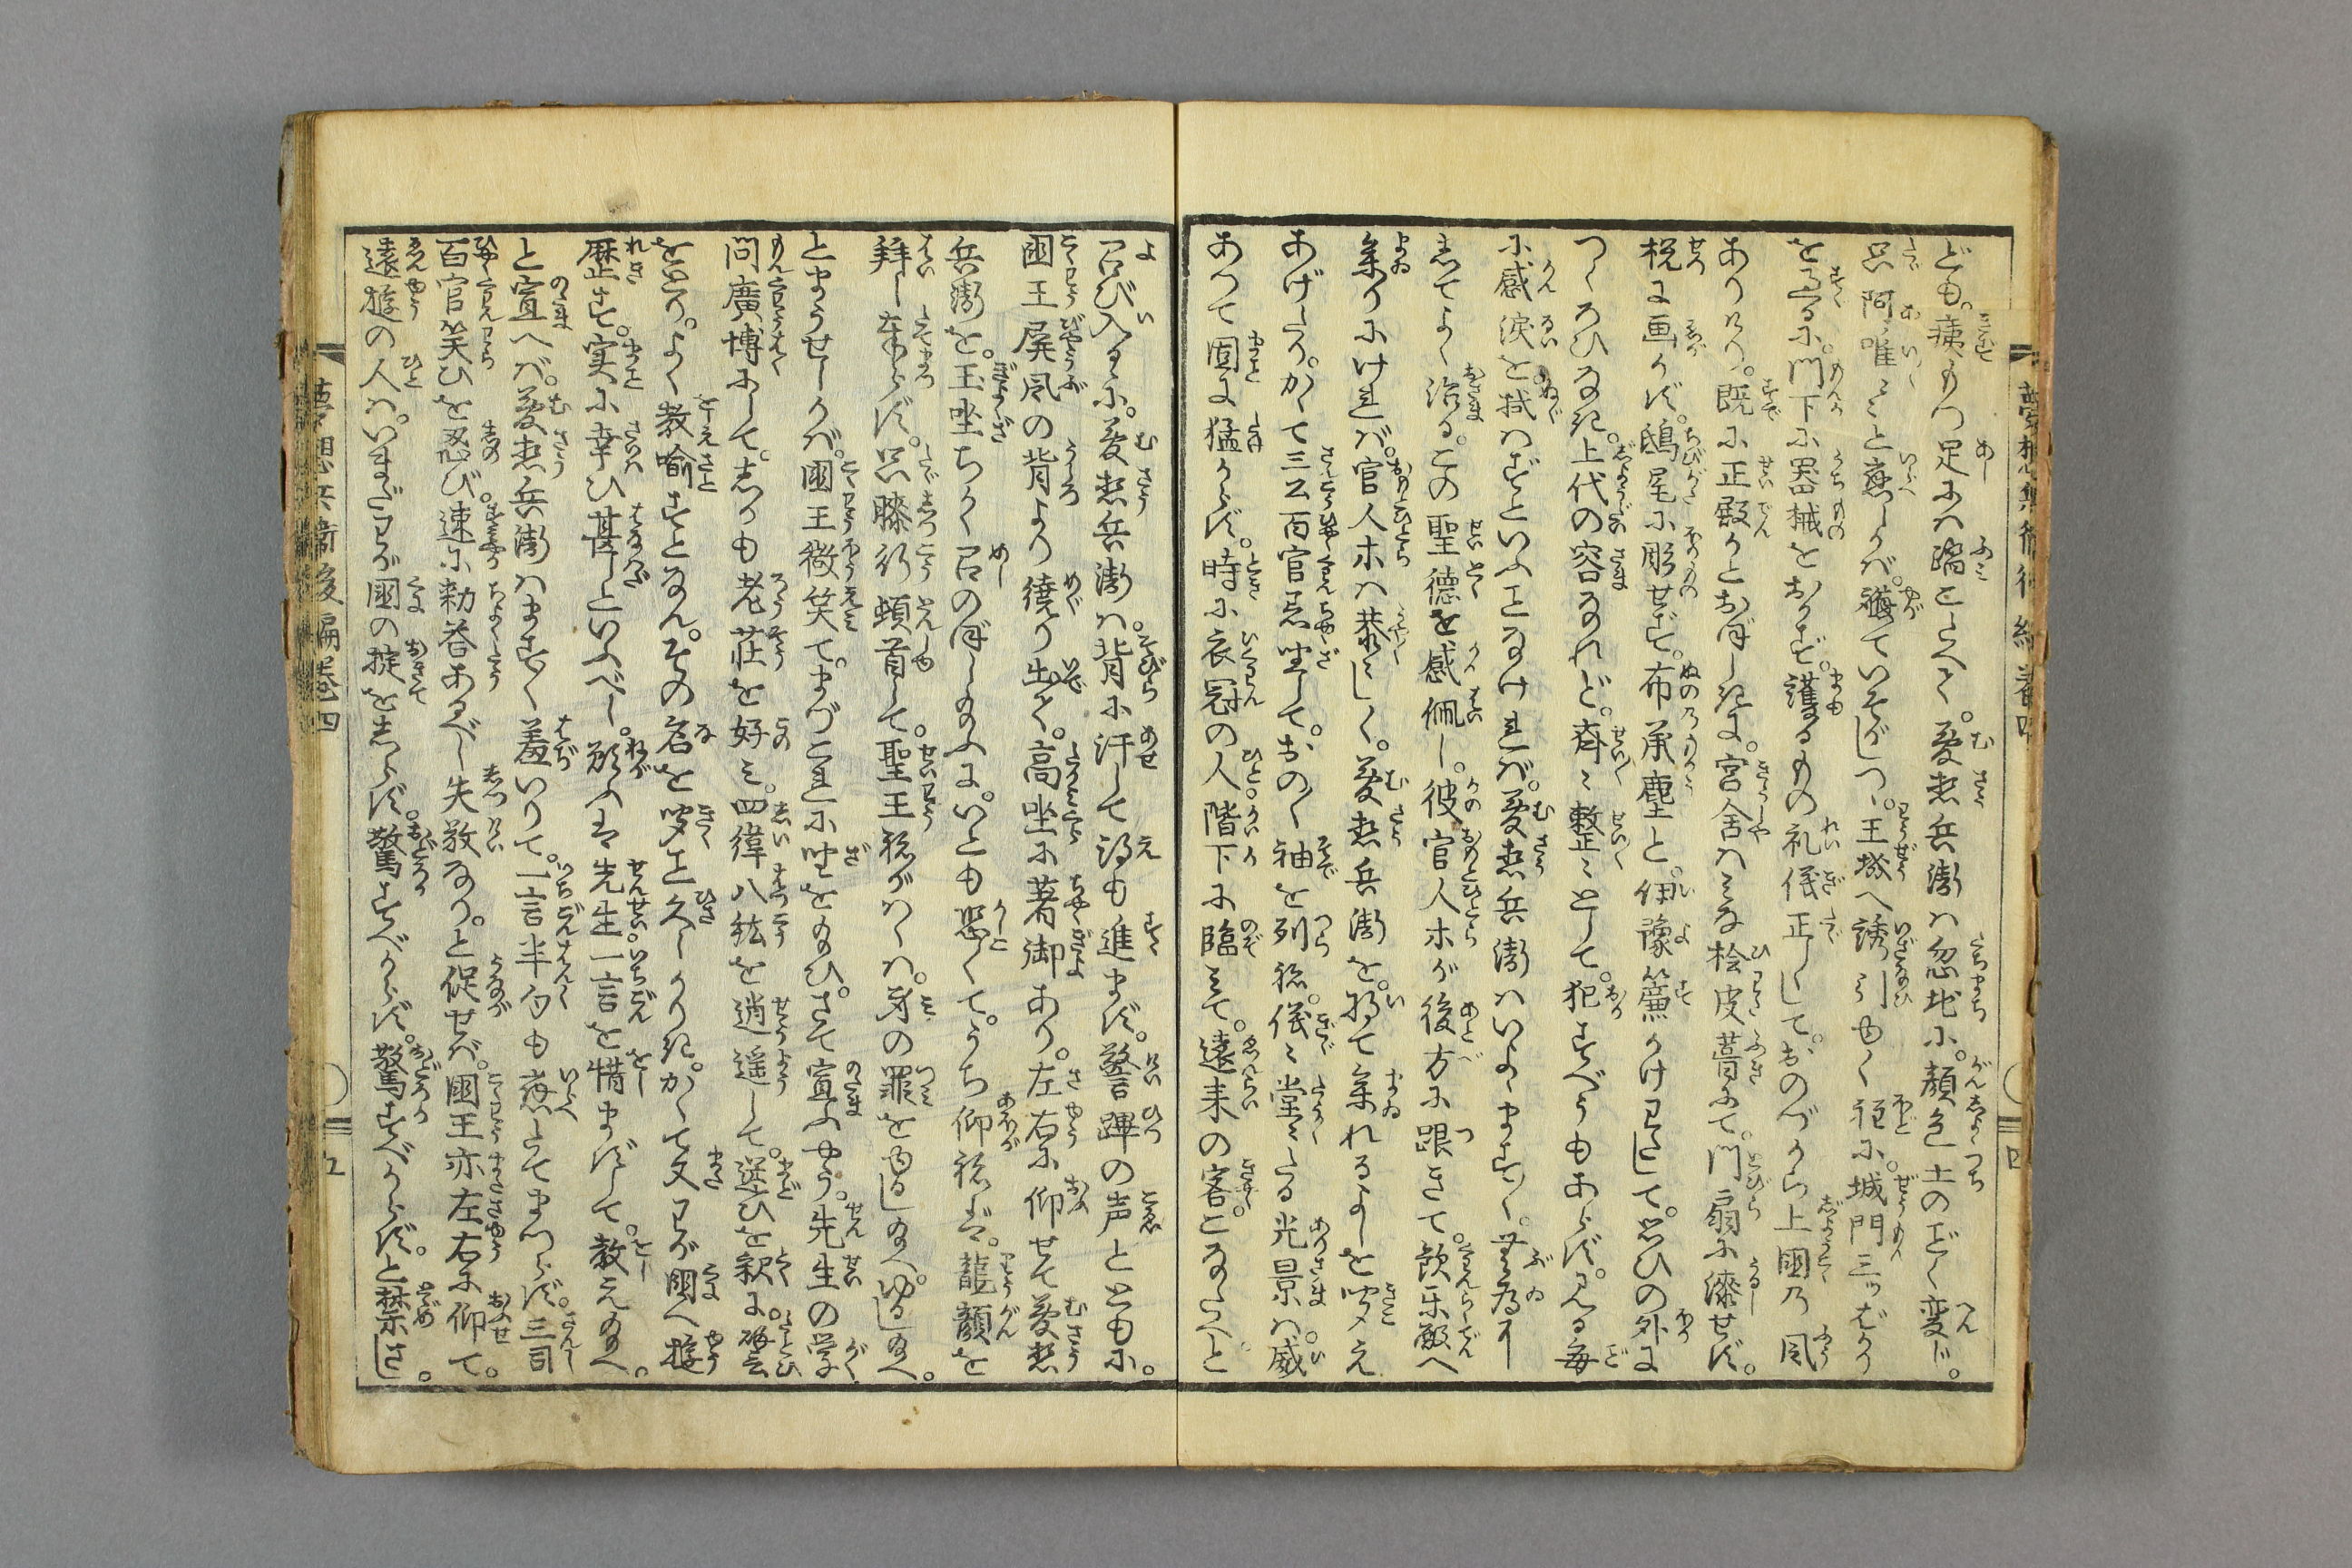 ども。痿もつ足にハ踏とゞへて。夢想兵衛ハ忽地に。顔色土のごとく変ず。
只阿唯々と応しかバ。纔ていそがしつゝ。王城へ誘引ゆく程に。城門三ッばかり
を過るに。門下に器械をおかず。護るものゝ礼儀正しくして。おのづから上國の風
ありけり。既に正殿かとおぼしきに。宮舎ハミな桧皮葺にて。門扇に漆せず。
梲に画かず。鴟尾に彫せず。布の承塵と。伊豫簾かけわたして。思ひの外に
つくろひなき。上代の容なれど。斉々整々として。犯すべうもあらず。見る毎
に感涙を拭ハずといふことなけれバ。夢想兵衛ハいよ／＼ますく。無為にし
てよく治る。この聖徳を感佩し。彼官人ホが後方に跟きて。歓乐殿へ
參りにけれバ。官人ホハ恭々しく。夢想兵衛を。将て參れるよしを聞え
あげたり。かくて三公百官忌坐して。おの／＼袖を列ね。儀々堂々たる光景ハ。威
あつて固に猛からず。時に衣冠の人階下に臨ミて。遠来の客こなたへと
召び入るゝに。夢想兵衛ハ。背に汗して得も進まず。警蹕の声とともに。
國王屏風の背より繞り出て。高坐に著御あり。左右に仰せて夢想
兵衛を。玉坐ちかく召のぼし給ふに。いとも恐くて。うち仰ねど。龍顔を
拜し奉らず。只膝行頓首して。聖王ねがハくハ。身の罪をゆるし給へ。ゆるし給へ
とまうせしかバ。國王微笑て。まづこれに坐を給ひ。さて宣ふやう。先生の学
問廣博にして。しかも老荘を好ミ。四緯八紘を逍遥して。迷ひを釈に。譬
をとり。よく教喩すとなん。その名を聞こと久しかりき。かくて又わが國へ遊
歴す。実に幸ひ甚しといふべし。願ふハ先生一言を惜まずして。教え給へ。
と宣へバ。夢想兵衛ハます／＼羞いりて。一言半句も応たてまつらず。三司
百官笑ひを忍び。速に勅答あるべし失敬なり。と促せバ。國王亦左右に仰て。
遠遊の人ハ。いまだわが國の掟をしらず。驚すべからず。驚すべからず。と禁じさし。
夢想兵衛後編卷四